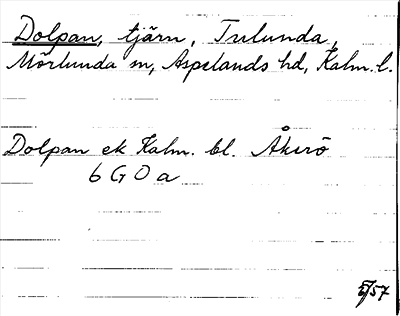 Dolpan, tjärn, Tulunda,
Mörlunda sn, Aspelands hd, Kalm. l.
Dolpan ek Kalm. bl. Åkerö
6 G O a
/57